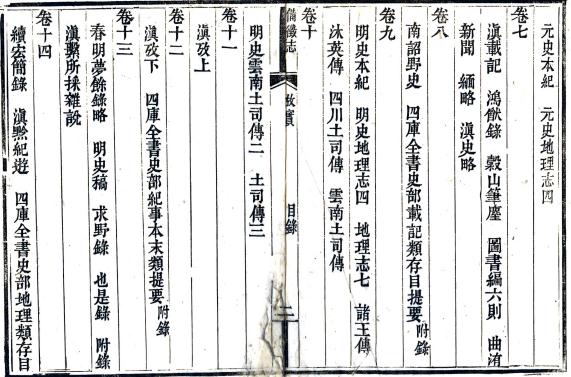 元史本紀 元史地理志四
卷七
滇載記 鴻猷錄 穀山筆麈 圖書編六則 曲洧
新聞 緬略 滇史略
卷八
南詔野史 四庫全書史部載記類存目提要附錄
卷九
明史本紀 明史地理志四 地理志七 諸王傳
沐英傳 四川土司傳 雲南土司傳
卷十
備徵志 故實 目錄 二
明史雲南土司傳二 土司傳三
卷十一
滇攷上
卷十二
滇攷下 四庫全書史部紀事本末類提要附錄
卷十三
春明夢餘錄略 明史稿 求野錄 也是錄 附錄
滇繫所採雜說
卷十四
續宏簡錄 滇黔紀遊 四庫全書史部地理類存目